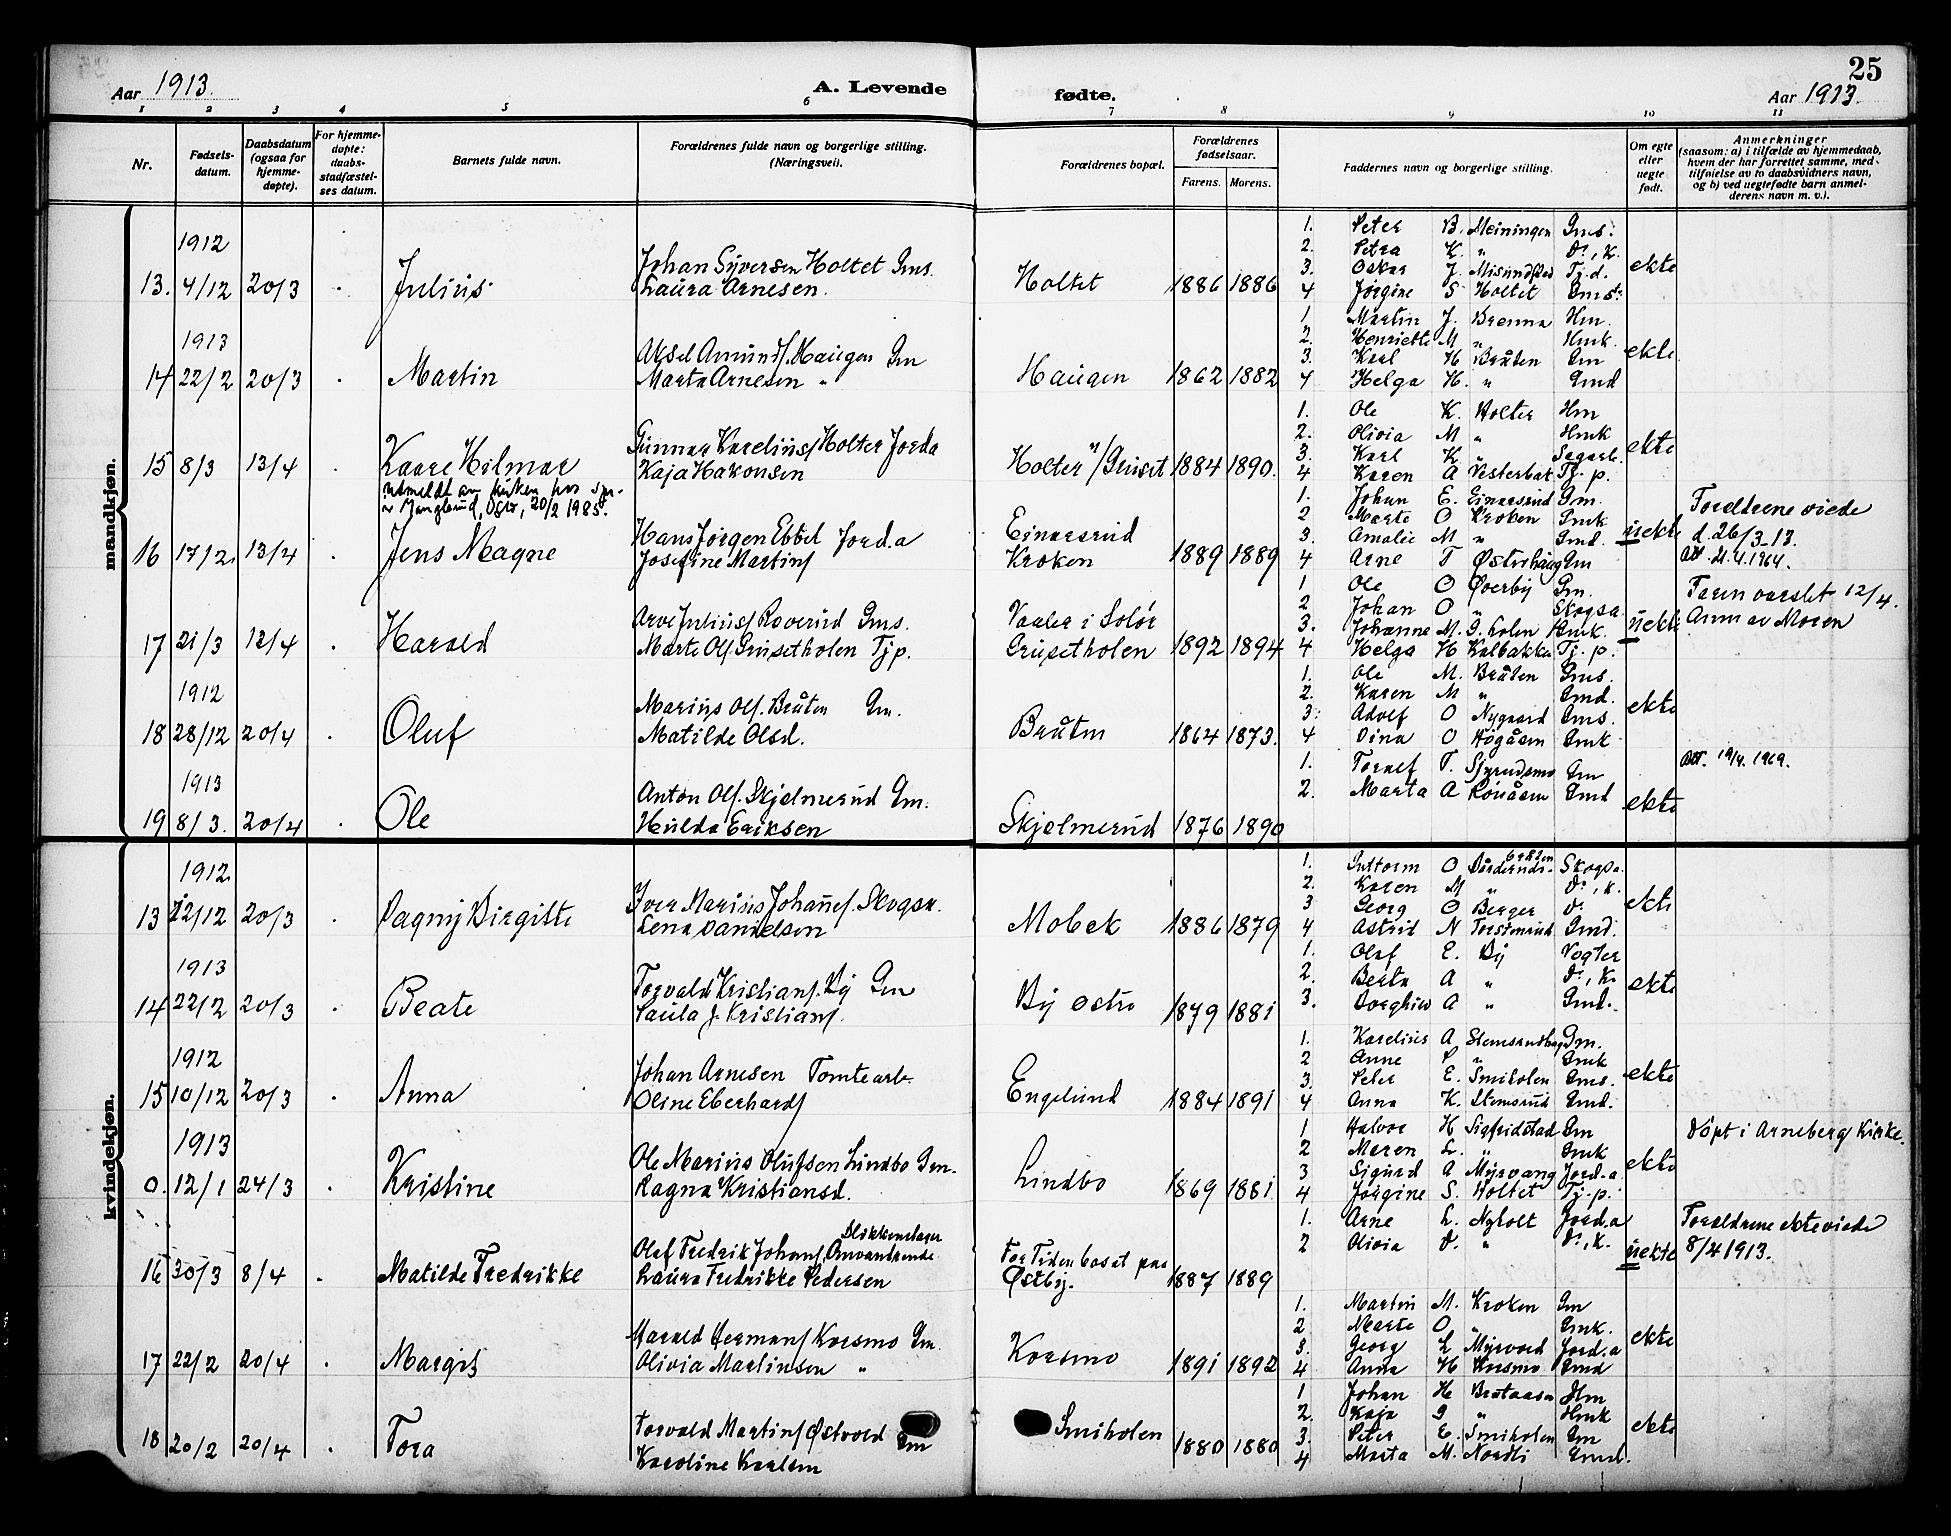 25
Aar 1913. A. Levende fødte. Aar 1913.
1 2 3 4 5 6 7 8 9 10 11
Nr.
Fødsels-
datum.
Daabsdatum
(ogsaa for
hjemme-
døpte).
For hjemme-
døpte:
daabs-
stadfæstel-
ses datum.
Barnets fulde navn.
Forældrenes fulde navn og borgerlige stilling.
(Næringsvei).
Forældrenes bopæl.
Forældrenes
fødselsaar.
Farens. Morens.
Faddernes navn og borgerlige stilling.
Om egte
eller
uegte
født.
Anmerkninger
(saasom: a) i tilfælde av hjemmedaab,
hvem der har forrettet samme, med-
tilføielse av to daabsvidners navn,
og b) ved uegtefødte barn anmel-
derens navn m. v.).
mandkjøn.
1912
13. 4/12 20/3 Julius
Johan Syversen Holtet Gms.
Laura Arnesen.
Holtet 1886 1886
1. Peter B. Meiningen Gms.
2. Petra K. " Do, K.
3. Oskar J. Tj.d.
4 Jørgine S Holtet Gmst.
ekte
1913
14 22/2 20/3 Martin
Aksel Amunds. Haugen Gm
Marta Arnesen "
Haugen 1862 1882
1 Martin J. Brenna Hm.
2. Henriette M " Hmk.
3. Karl H Bråten Gm
4 Helga H. " Gmd
ekte
15 8/3 13/4 Kaare Hilmar
Gunnar Karelius Holter Jorda
Kaja Hakonsen
Holter n/Gruset 1884 1890.
1. Ole K. Holter Hm
2. Olivia M " Hmk
3. Karl K. "
4 Karen A Vesterbak Tj. p.
ekte
16 17/2 13/4 Jens Magne
Hans Jørgen Ebbel Jord.a
Josefine Martins
Einarsrud
Kroken 1889 1889
1. Johan E. Einarsrud Gm.
2 Marte O Kroken Gmk
3. Amalie M " Gmd.
4 Arne T Østvihaug Gm
uekte
Foreldrene viede
d. 26/3-13.
Att. 21.4.1964.
17 21/3 12/4 Harald
Arve Julius Roverud Gms.
Marte Ols. Grusetholen Tjp.
Vaaler i Solør
Grusetholen 1892 1894
1 Ole O Øverby Gm.
2 Johan O " Skogsa.
3. Johanne M. G.holen Gmk.
4 Helga H Kalbakken Tj. p.
uekte
Faren varslet 12/4.
Anm av Moren
1912
18 28/12 20/4 Oluf
Marius Ols. Bråten Gm.
Matilde Olsd.
Bråten 1864 1873.
1. Ole M. Bråten Gms.
2. Karen M " Gmd.
3. Adolf O Nygaard Gms.
4 Dina O Høgåsen Gmk
ekte
1913
19 8/3. 20/4 Ole
Anton Ols. Skjelmerud Gm.
Hulda Eriksen
Skjelmerud 1876 1890
1. Torlef T. Gm
2. Marta A Rønåsen Gmd
ekte
Att. 19/4. 1969.
kvindekjøn.
1912
13 22/12 20/3 Dagny Birgitte
Iver Marius Johans. Skogsa.
Lena Danielsen
Mobek 1886 1879
1. Guttorm O Skogsa.
2. Karen M " Do, K.
3 Georg O Berger Do
4 Astrid N Torstenrud Gmd.
ekte
1913
14 22/2 20/3 Beate
Torvald Kristians. By Gm
Paula J. Kristians.
By østre 1879 1881
1. Olaf E. By Vogter
2. Berta A " Do, K.
3. Borghild A " Gmd.
ekte
1912
15 10/12 20/3 Anna
Johan Arnesen Tomtearb.
Oline Eberhards
Engelund 1884 1891
1. Karelius A Stemsrudhag Gm.
2 Anne P. " Gmk
3. Peter E. Smiholen Gms.
4 Anna K. Stemsrud Gmd.
ekte
1913
0. 12/1 24/3 Kristine
Ole Marius Olufsen Lindbo Gm.
Ragna Kristiansd.
Lindbo 1869 1881
1 Halvor H Sigfridstad Gm
2 Maren L. " Gmk
3 Sigurd A Myrvang Jord.a.
4 Jørgine S. Holtet Tj.p.
ekte
Døpt i Arneberg Kirke.
16 30/3 8/4 Matilde Fredrikke
Blikkenslager
Olaf Fredrik Johans. Omvandrende
Laura Fredrikke Pedersen
For Tiden bosat paa
Østby. 1887 1889
1. Arne L. Nyholt Jord.a
2 Olivia D. " Do, K.
uekte
Foreldrene ekteviede
8/4 1913.
17 22/2 20/4 Margit
Harald Hermans Korsmo Gm.
Olivia Martinsen "
Korsmo 1891 1892
1. Martin M. Kroken Gm
2 Marte O. " Gmk.
3. Georg L Myrvold Jord.a
4 Anna H Korsmo Gmd
ekte
18 20/2 20/4 Tora
Torvald Martins Østvold Gm
Karoline Karlsen
Smiholen 1880 1880
1 Johan H Brataasen Hm
2. Kaja G " Hmk
3. Peter E. Smiholen Gm
4 Marta M. Nordli Gmd.
ekte